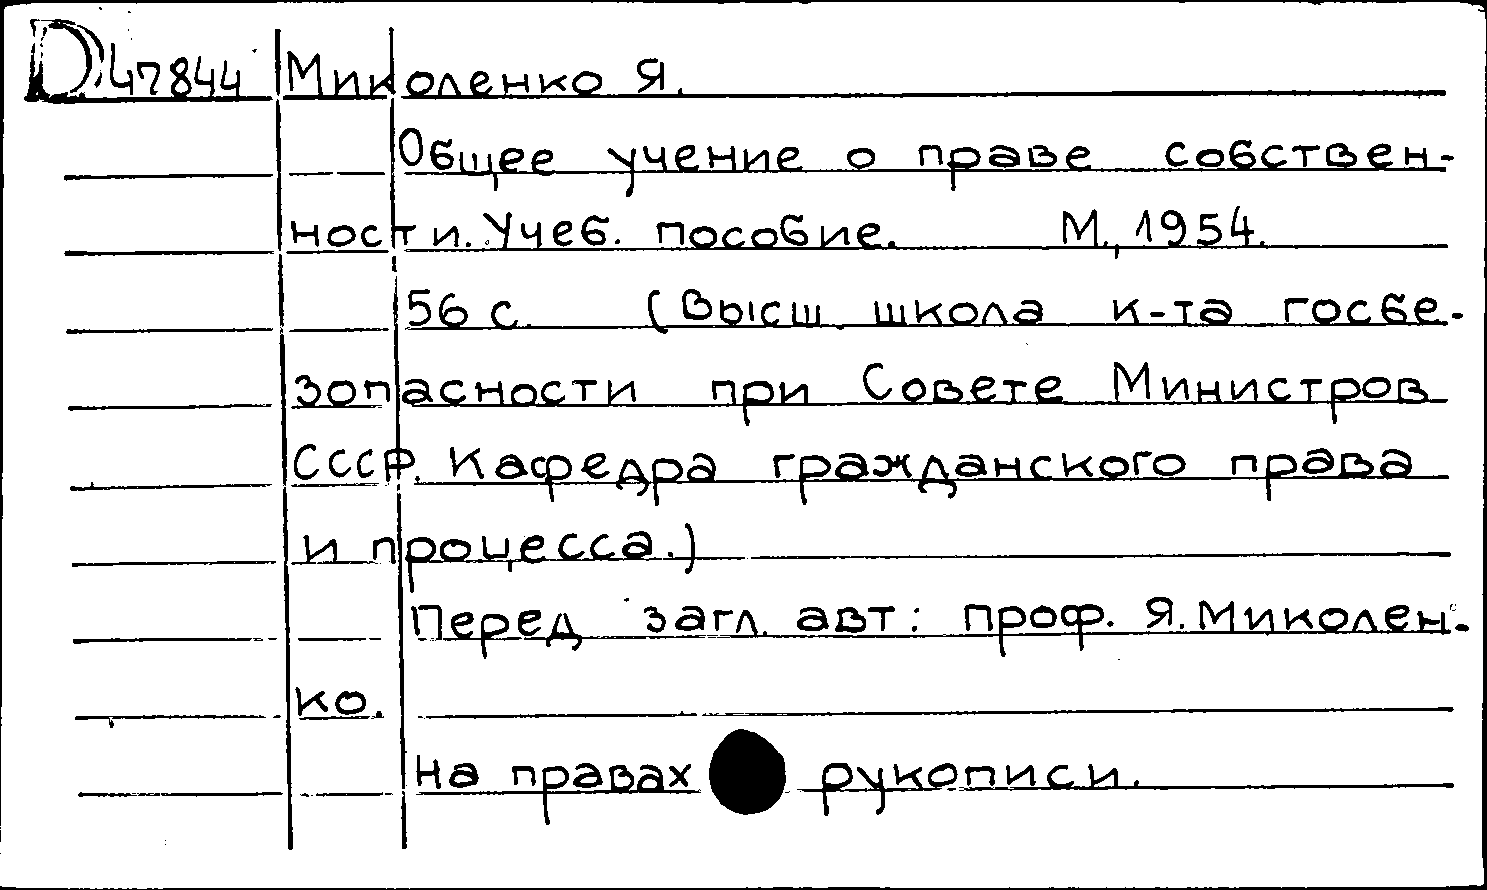 D47844 Миколенко Я.
Общее учение о праве собствен-
ности. Учеб. пособие. М., 1954.
56 с. (Высш. школа к-та госбе-
зопасности при Совете Министров
СССР. Кафедра гражданского права
и процесса.)
Перед загл. авт: проф. Я. Миколен-
ко.
На правах рукописи.